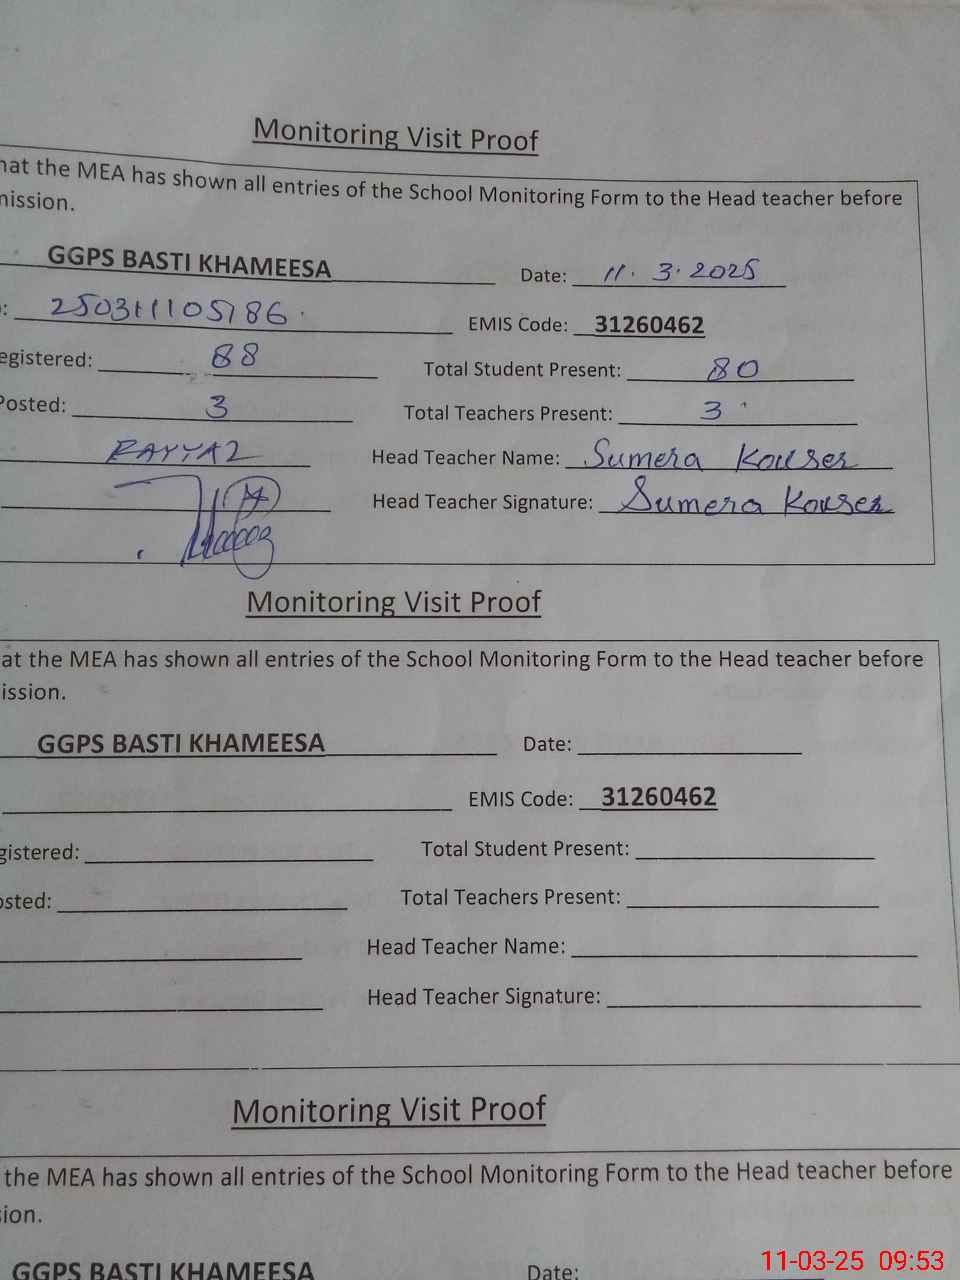 Monitoring Visit Proof
hat the MEA has shown all entries of the School Monitoring Form to the Head teacher before
nission.
GGPS BASTI KHAMEESA Date: 11.3.2025
: 250311105186 EMIS Code: 31260462
egistered: 88 Total Student Present: 80
Posted: 3 Total Teachers Present: 3
Head Teacher Name: Sumera Kouser
Head Teacher Signature: Sumera Kouser
Monitoring Visit Proof
at the MEA has shown all entries of the School Monitoring Form to the Head teacher before
ission.
GGPS BASTI KHAMEESA Date:
EMIS Code: 31260462
gistered: Total Student Present:
osted: Total Teachers Present:
Head Teacher Name:
Head Teacher Signature:
Monitoring Visit Proof
the MEA has shown all entries of the School Monitoring Form to the Head teacher before
sion.
GGPS BASTI KHAMEESA Date:
11-03-25 09:53